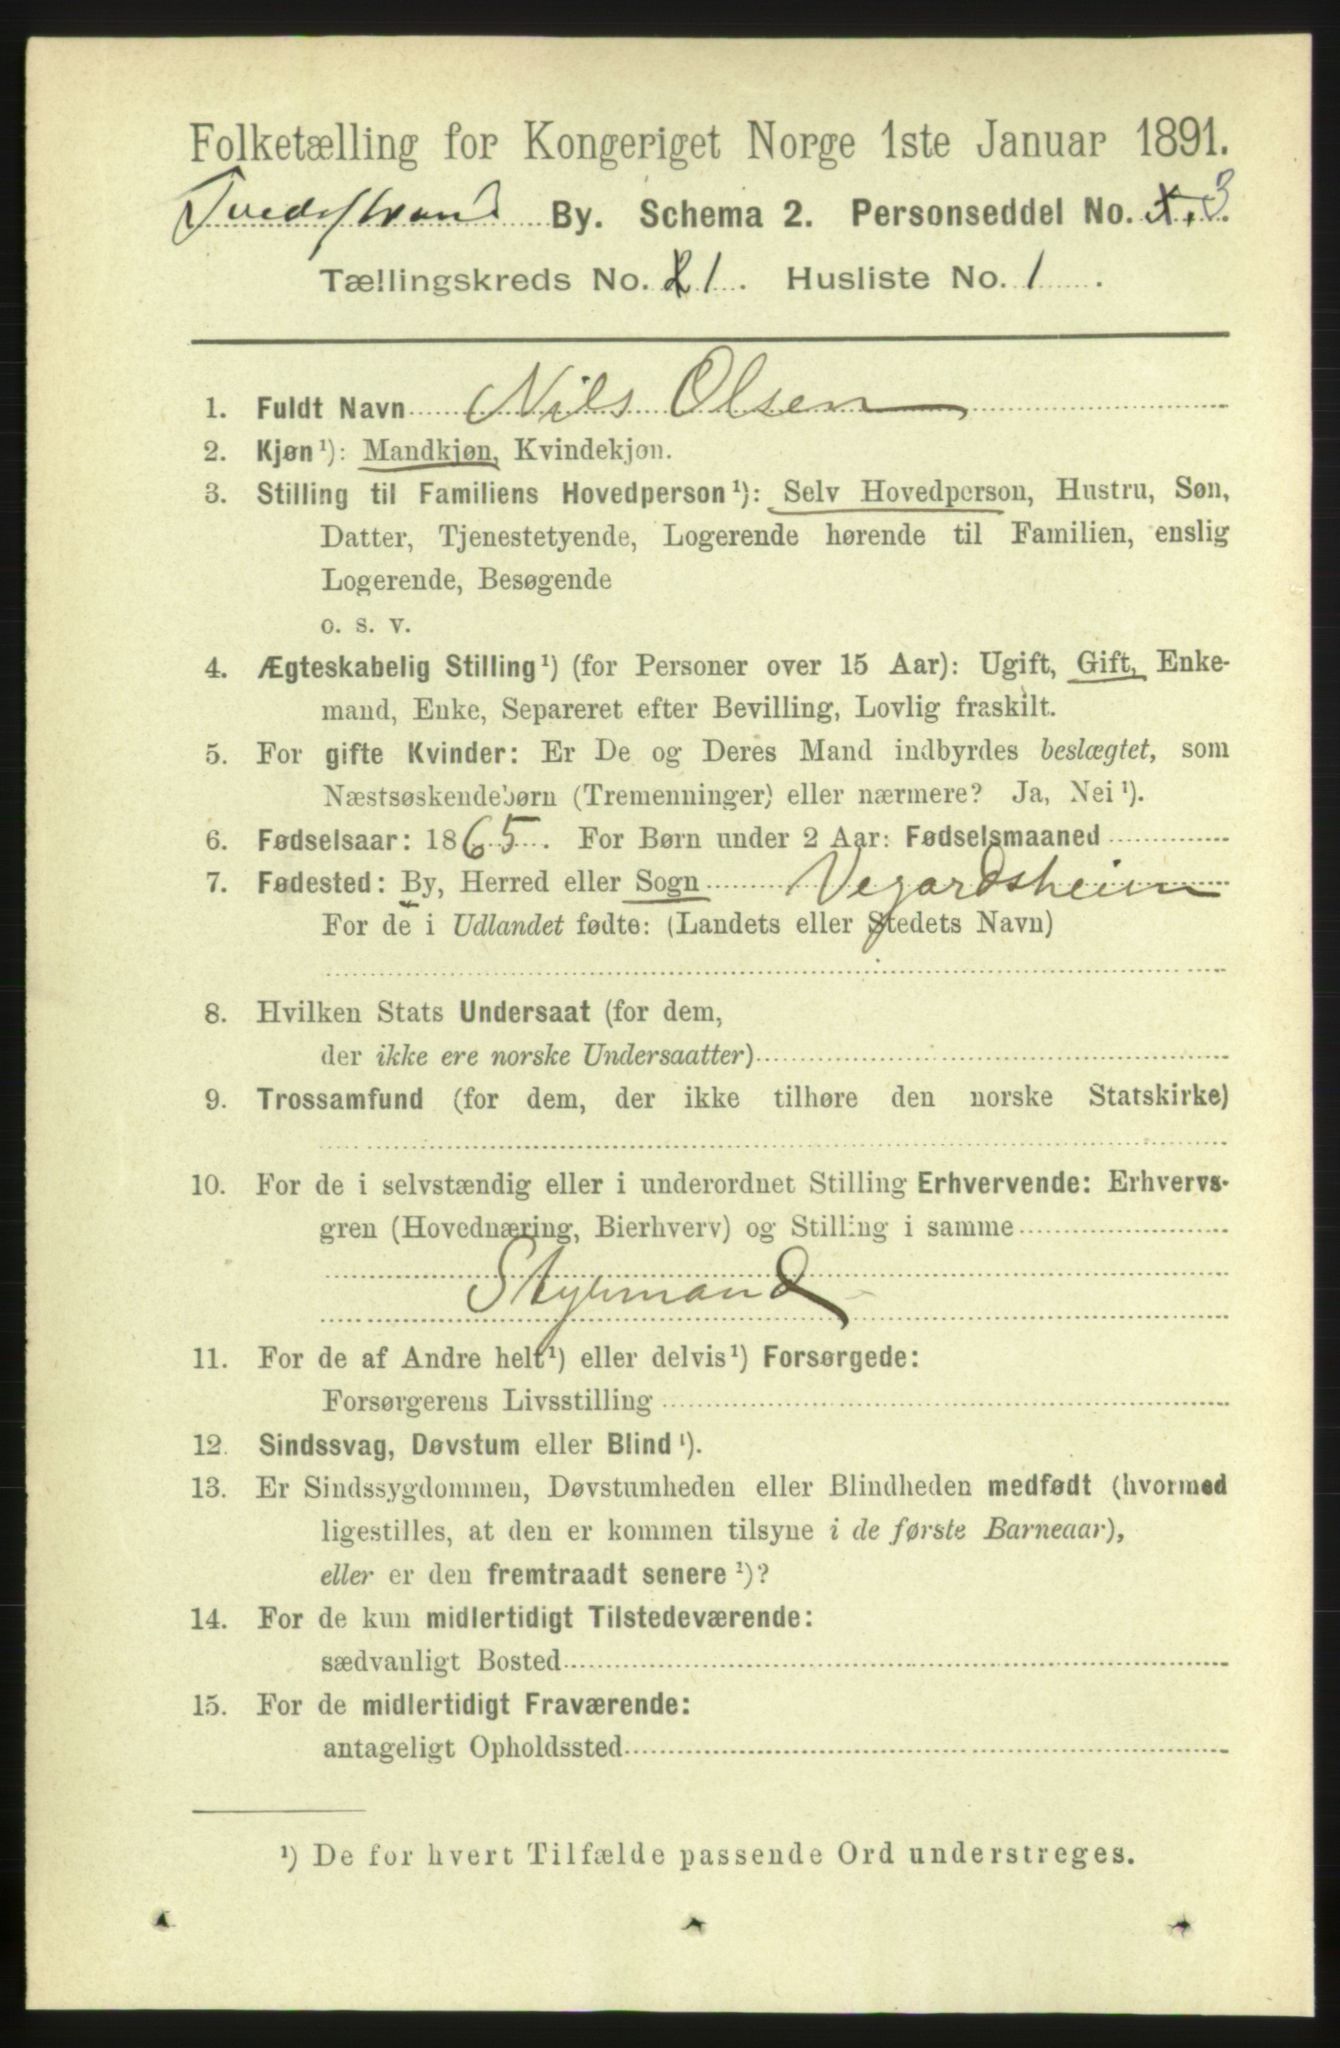 Folketælling for Kongeriget Norge 1ste Januar 1891.
Tvedestrand By. Schema 2. Personseddel No. 3.
Tællingskreds No. 1. Husliste No. 1.
1. Fuldt Navn Nils Olsen
2. Kjøn¹): Mandkjøn, Kvindekjøn.
3. Stilling til Familiens Hovedperson¹): Selv Hovedperson, Hustru, Søn,
Datter, Tjenestetyende, Logerende hørende til Familien, enslig
Logerende, Besøgende
o. s. v.
4. Ægteskabelig Stilling¹) (for Personer over 15 Aar): Ugift, Gift, Enke-
mand, Enke, Separeret efter Bevilling, Lovlig fraskilt.
5. For gifte Kvinder: Er De og Deres Mand indbyrdes beslægtet, som
Næstsøskendebørn (Tremenninger) eller nærmere? Ja, Nei¹).
6. Fødselsaar: 1865. For Børn under 2 Aar: Fødselsmaaned
7. Fødested: By, Herred eller Sogn Vegardsheim
For de i Udlandet fødte: (Landets eller Stedets Navn)
8. Hvilken Stats Undersaat (for dem,
der ikke ere norske Undersaatter)
9. Trossamfund (for dem, der ikke tilhøre den norske Statskirke)
10. For de i selvstændig eller i underordnet Stilling Erhvervende: Erhvervs-
gren (Hovednæring, Bierhverv) og Stilling i samme
Styrmand
11. For de af Andre helt¹) eller delvis¹) Forsørgede:
Forsørgerens Livsstilling
12. Sindssvag, Døvstum eller Blind¹).
13. Er Sindssygdommen, Døvstumheden eller Blindheden medfødt (hvormed
ligestilles, at den er kommen tilsyne i de første Barneaar),
eller er den fremtraadt senere¹)?
14. For de kun midlertidigt Tilstedeværende:
sædvanligt Bosted
15. For de midlertidigt Fraværende:
antageligt Opholdssted
¹) De for hvert Tilfælde passende Ord understreges.